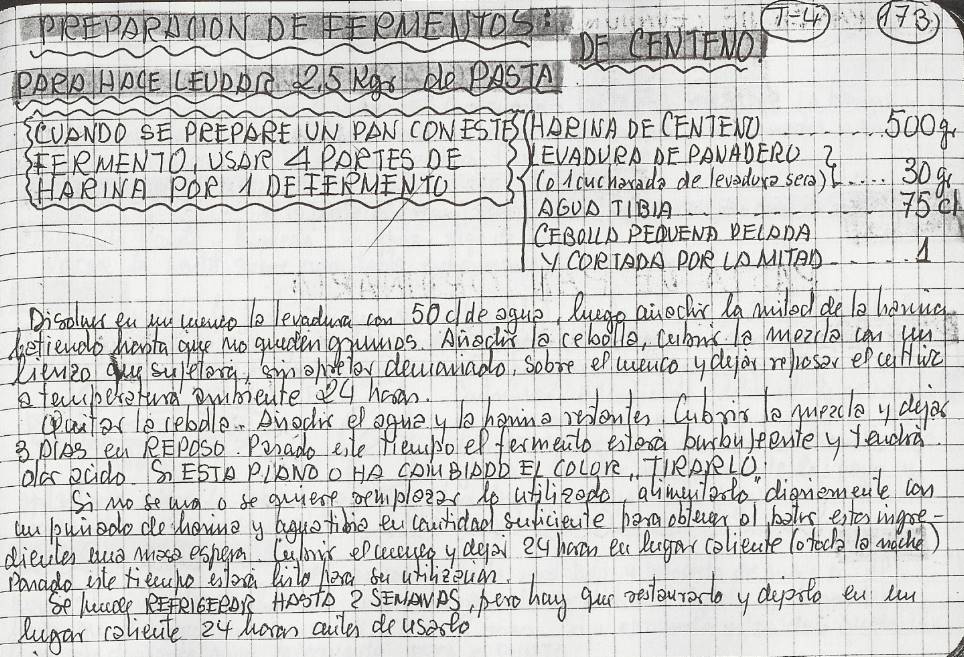 PREPARACION DE FERMENTOS:
DE CENTENO!
1-4
173
PARA HACE LEUDAR 2,5 Kgr de PASTA
CUANDO SE PREPARE UN PAN CON ESTE
FERMENTO, USAR 4 PARTES DE
HARINA POR 1 DE FERMENTO
HARINA DE CENTENO ........ 500 gr
LEVADURA DE PANADERO
(o 1 cucharada de levadura seca) .... 30 gr
AGUA TIBIA ........ 75 cl
CEBOLLA PEQUEÑA PELADA
Y CORTADA POR LA MITAD ..... 1
Disolver en un cuenco la levadura con 50 cl de agua, luego añadir la mitad de la harina
batiendo hasta que no queden grumos. Añadir la cebolla, cubrir la mezcla con un
lienzo que sujetará, sin apretar demasiado, sobre el cuenco y dejar reposar el
a temperatura ambiente 24 horas.
Quitar la cebolla. Añadir el agua y la harina restantes. Cubrir la mezcla y dejar
3 DIAS en REPOSO. Pasado este tiempo el fermento estará burbujeante y tendrá
olor acido. SI ESTA PLANO O HA CAMBIADO EL COLOR, TIRARLO.
Si no se usa o se quiere remplazar lo utilizado, alimentarlo diariamente con
un puñado de harina y agua tibia en cantidad suficiente para obtener al batir estos ingre-
dientes una masa espesa. Cubrir el cuenco y dejar 24 horas en lugar caliente (o toda la noche)
Pasado este tiempo estará listo para su utilización.
Se puede REFRIGERAR HASTA 2 SEMANAS, pero hay que restaurarlo y dejarlo en un
lugar caliente 24 horas antes de usarlo